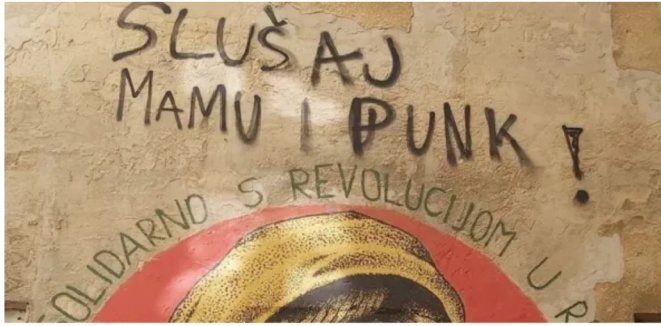 SLUŠAJ
MAMU I PUNK!
SOLIDARNO S REVOLUCIJOM U